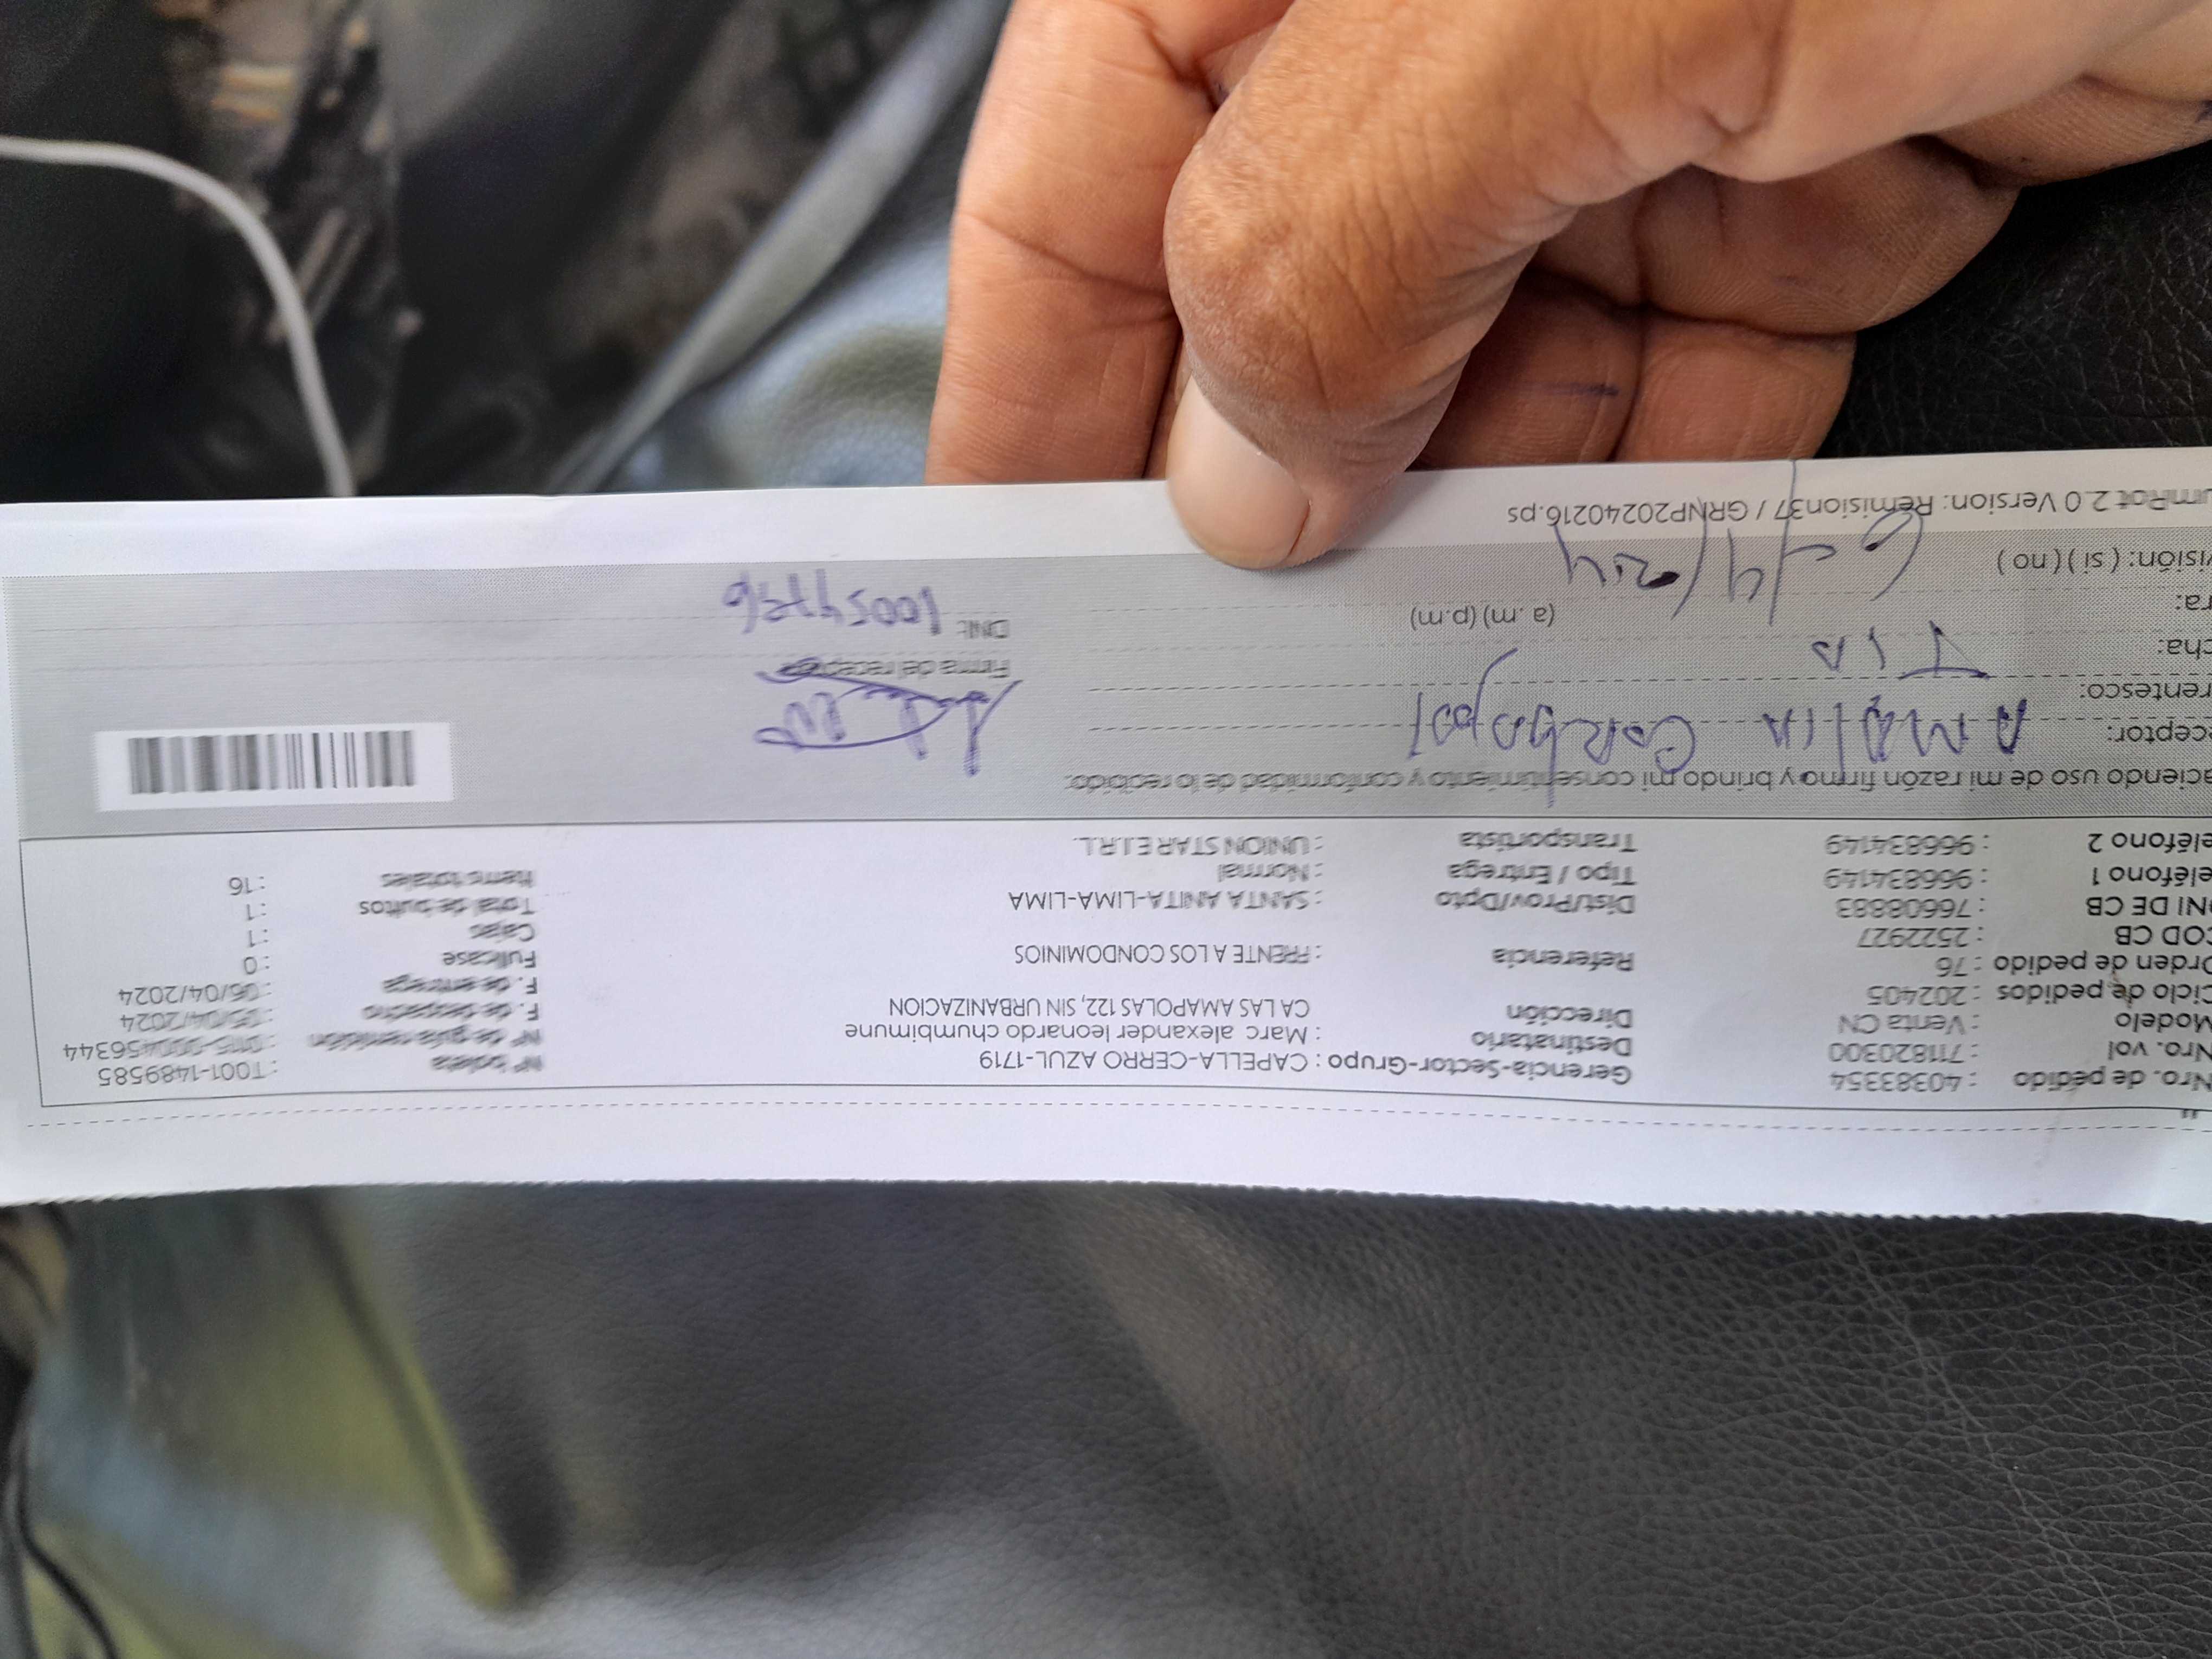 Nro. de pedido : 40383354 Gerencia-Sector-Grupo : CAPELLA-CERRO AZUL-1719 N° boleta : T001-1489585
Nro. vol : 711820300 Destinatario : Marc alexander leonardo chumbimune N° de guía remisión : 0115-000456344
Modelo : Venta CN Dirección CA LAS AMAPOLAS 122, SIN URBANIZACION F. de despacho : 05/04/2024
Ciclo de pedidos : 202405 F. de entrega : 06/04/2024
Orden de pedido : 76 Referencia : FRENTE A LOS CONDOMINIOS Fullcase : 0
COD CB : 2522927 Cajas : 1
NI DE CB : 76608883 Dist/Prov/Dpto : SANTA ANITA-LIMA-LIMA Total de bultos : 1
eléfono 1 : 966834149 Tipo / Entrega : Normal Items totales : 16
eléfono 2 : 966834149 Transportista : UNION STAR E.I.R.L.
aciendo uso de mi razón firmo y brindo mi consentimiento y conformidad de lo recibido.
ceptor: AMALIA
rentesco: TIA Firma del receptor
cha: DNI:
ra: (a. m) (p.m) 6/4/2024
visión: ( si ) ( no )
umRot 2.0 Version: Remision37 / GRNP20240216.ps